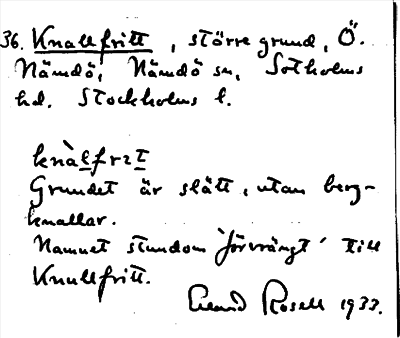 36. Knallfritt, större grund, Ö.
Nämdö, Nämdö sn, Sotholms
hd. Stockholms l.
knàlfrɪt
Grundet är slätt, utan berg-
knallar.
Namnet stundom 'förvrängt' till
Knullfritt.
Erland Rosell 1933.